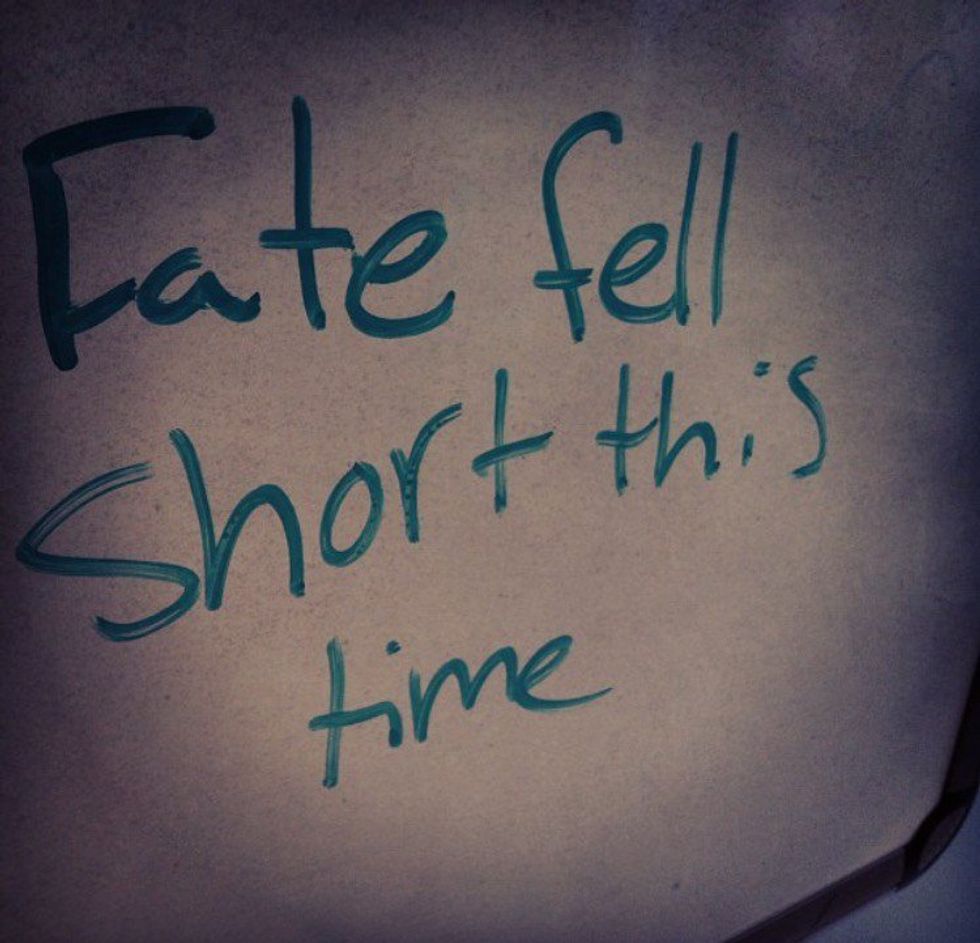 Fate fell
short this
time